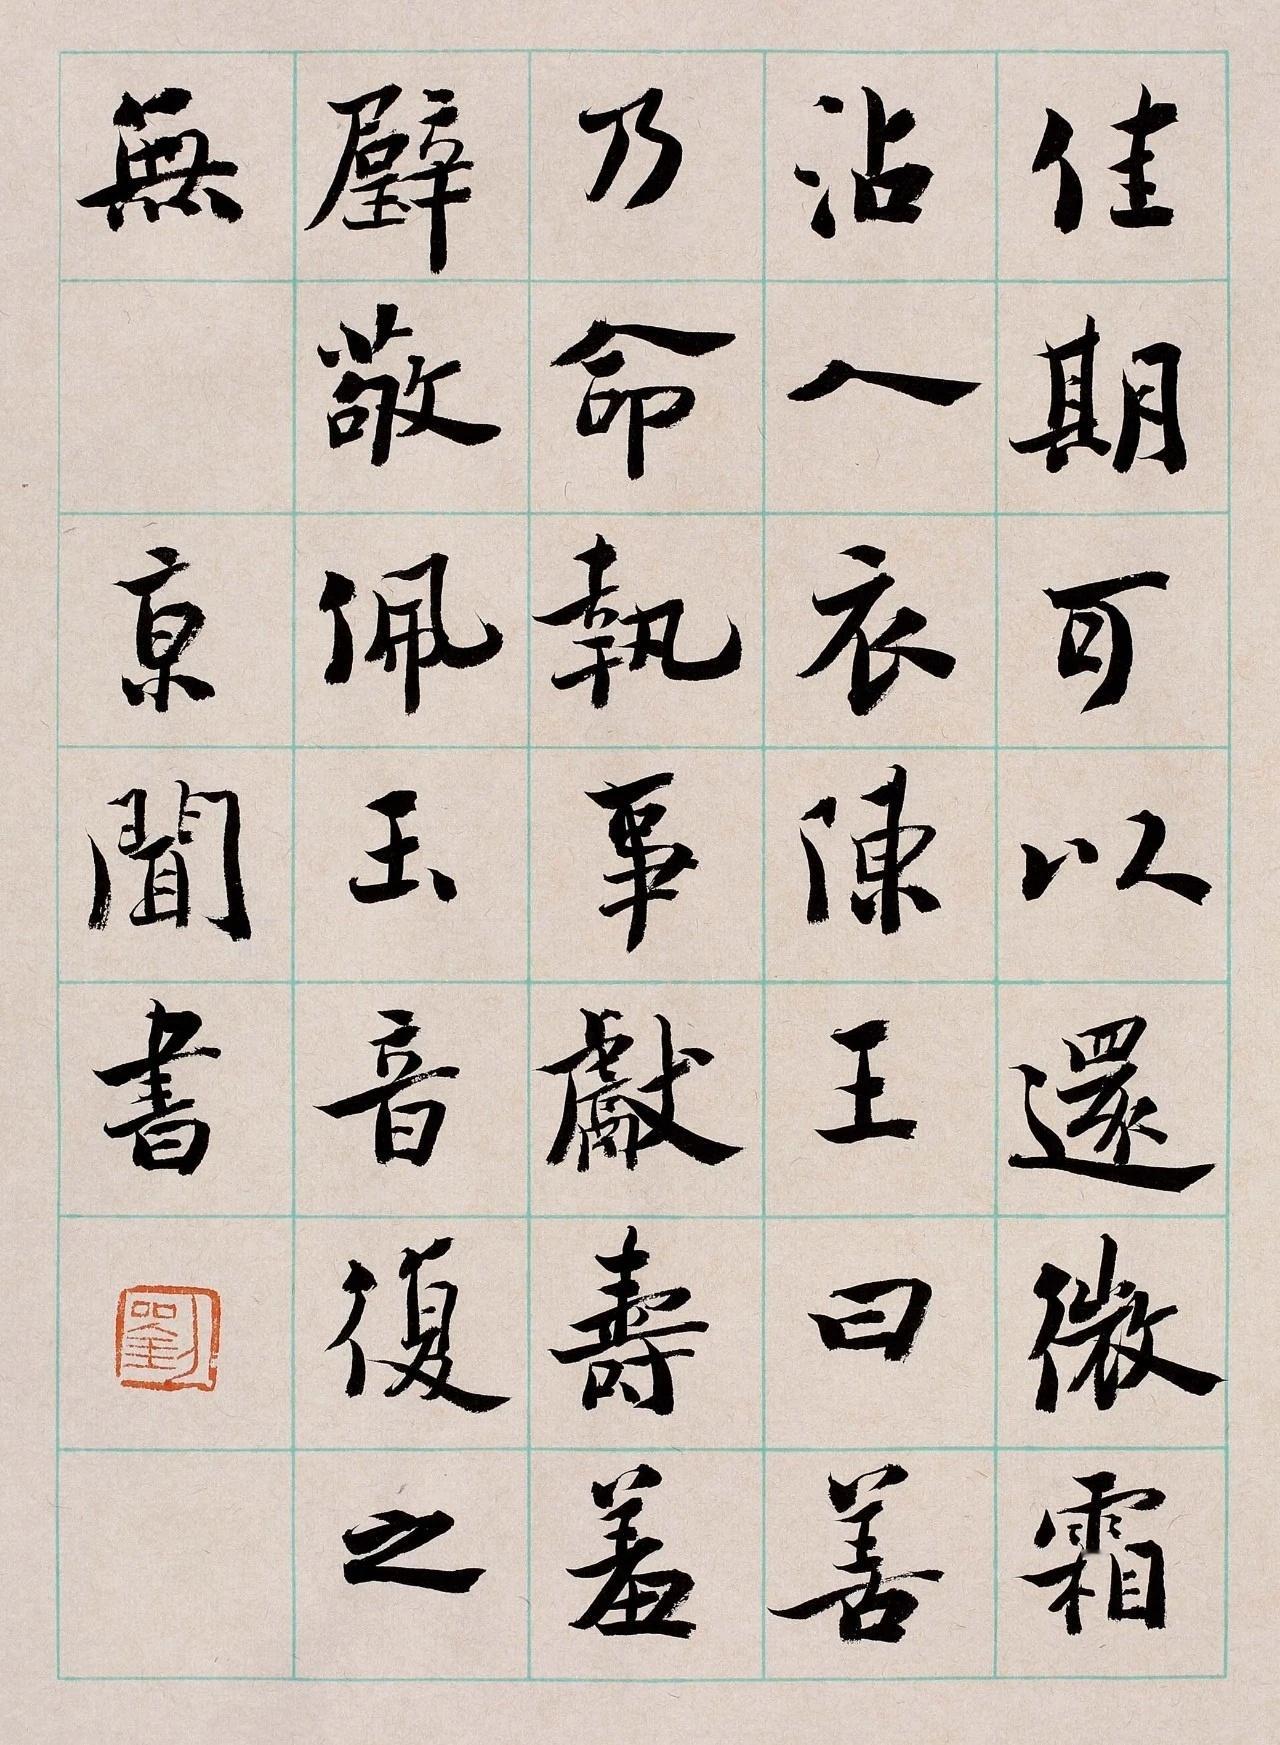 佳期可以還微霜
沾人衣陳王曰善
乃命執事獻壽羞
璧敬佩玉音復之
無
京聞書
劉